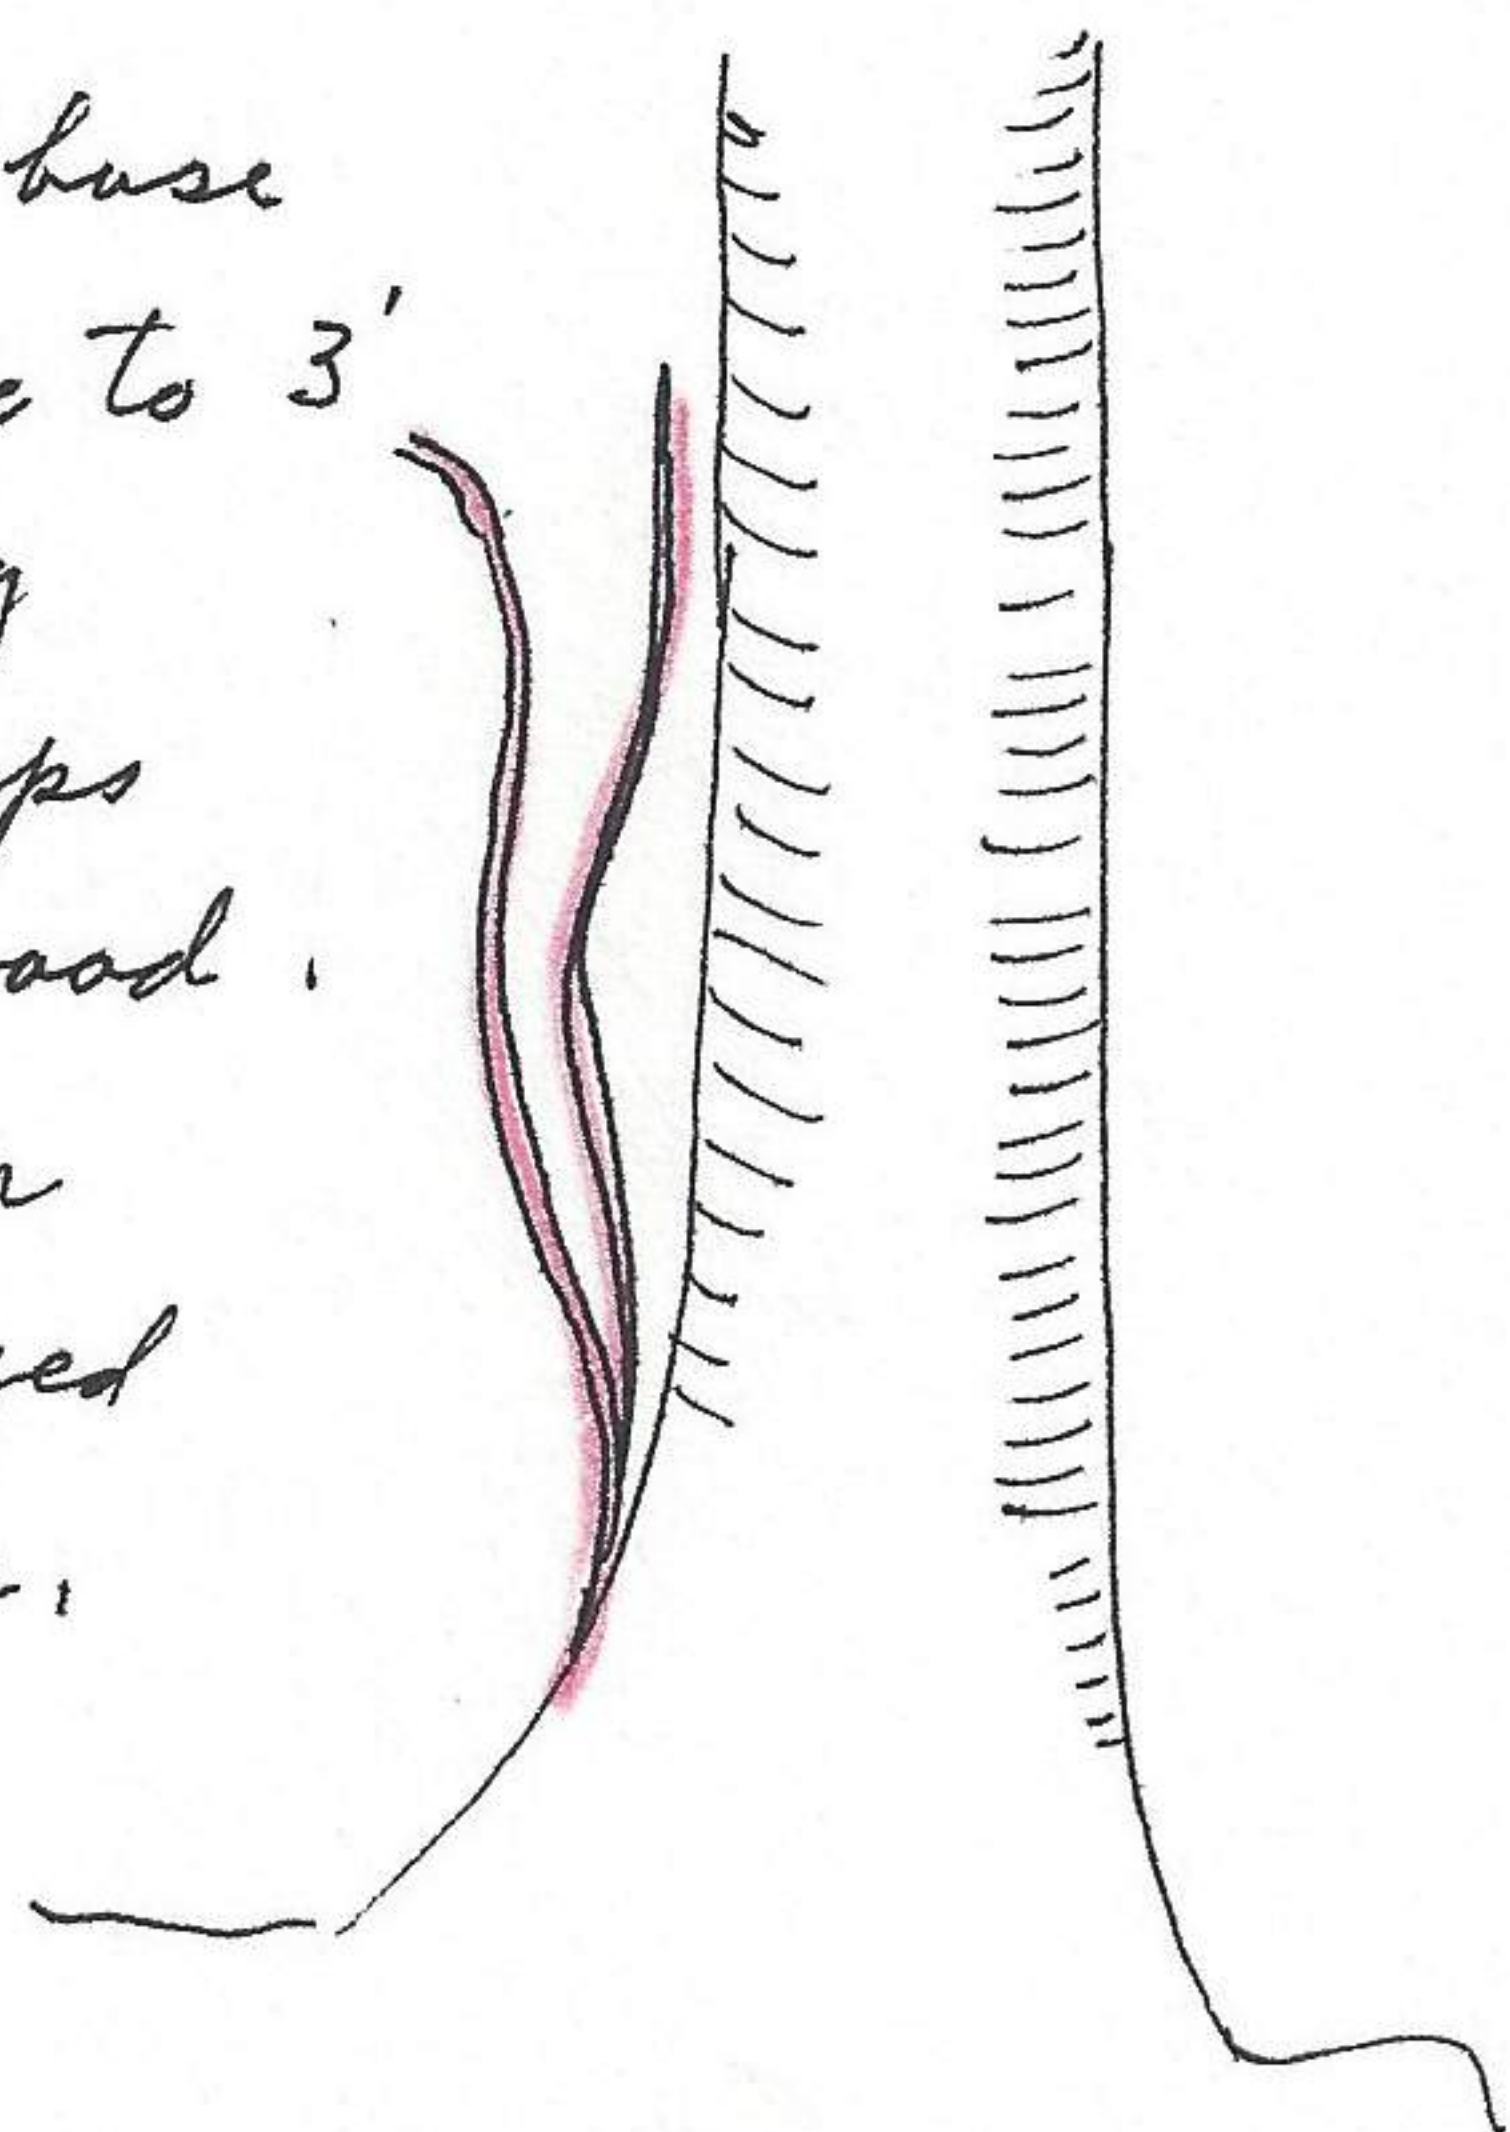 base
to 3'
ps
ood.
ed